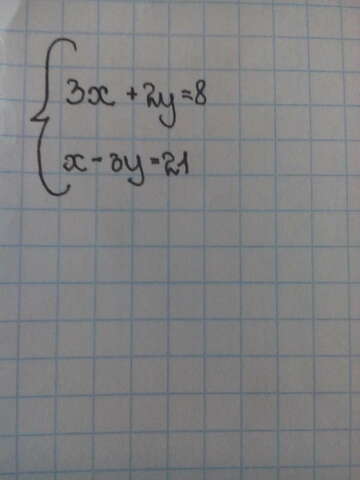 3x + 2y = 8
x - 3y = 21